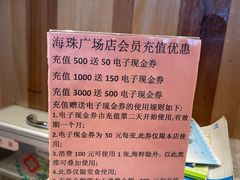 海珠广场店会员充值优惠
充值 500 送 50 电子现金券
充值 1000 送 150 电子现金券
充值 3000 送 500 电子现金券
充值赠送电子现金券的使用规则如下:
1.电子现金券由充值第二天开始使用,有效
期一个月;
2.电子现金券为 50 元每张,此券仅限本店使
用;
3.消费 100 元可使用 1 张,海鲜除外,以此类
推可叠加使用;
4.此券仅限堂食使用;